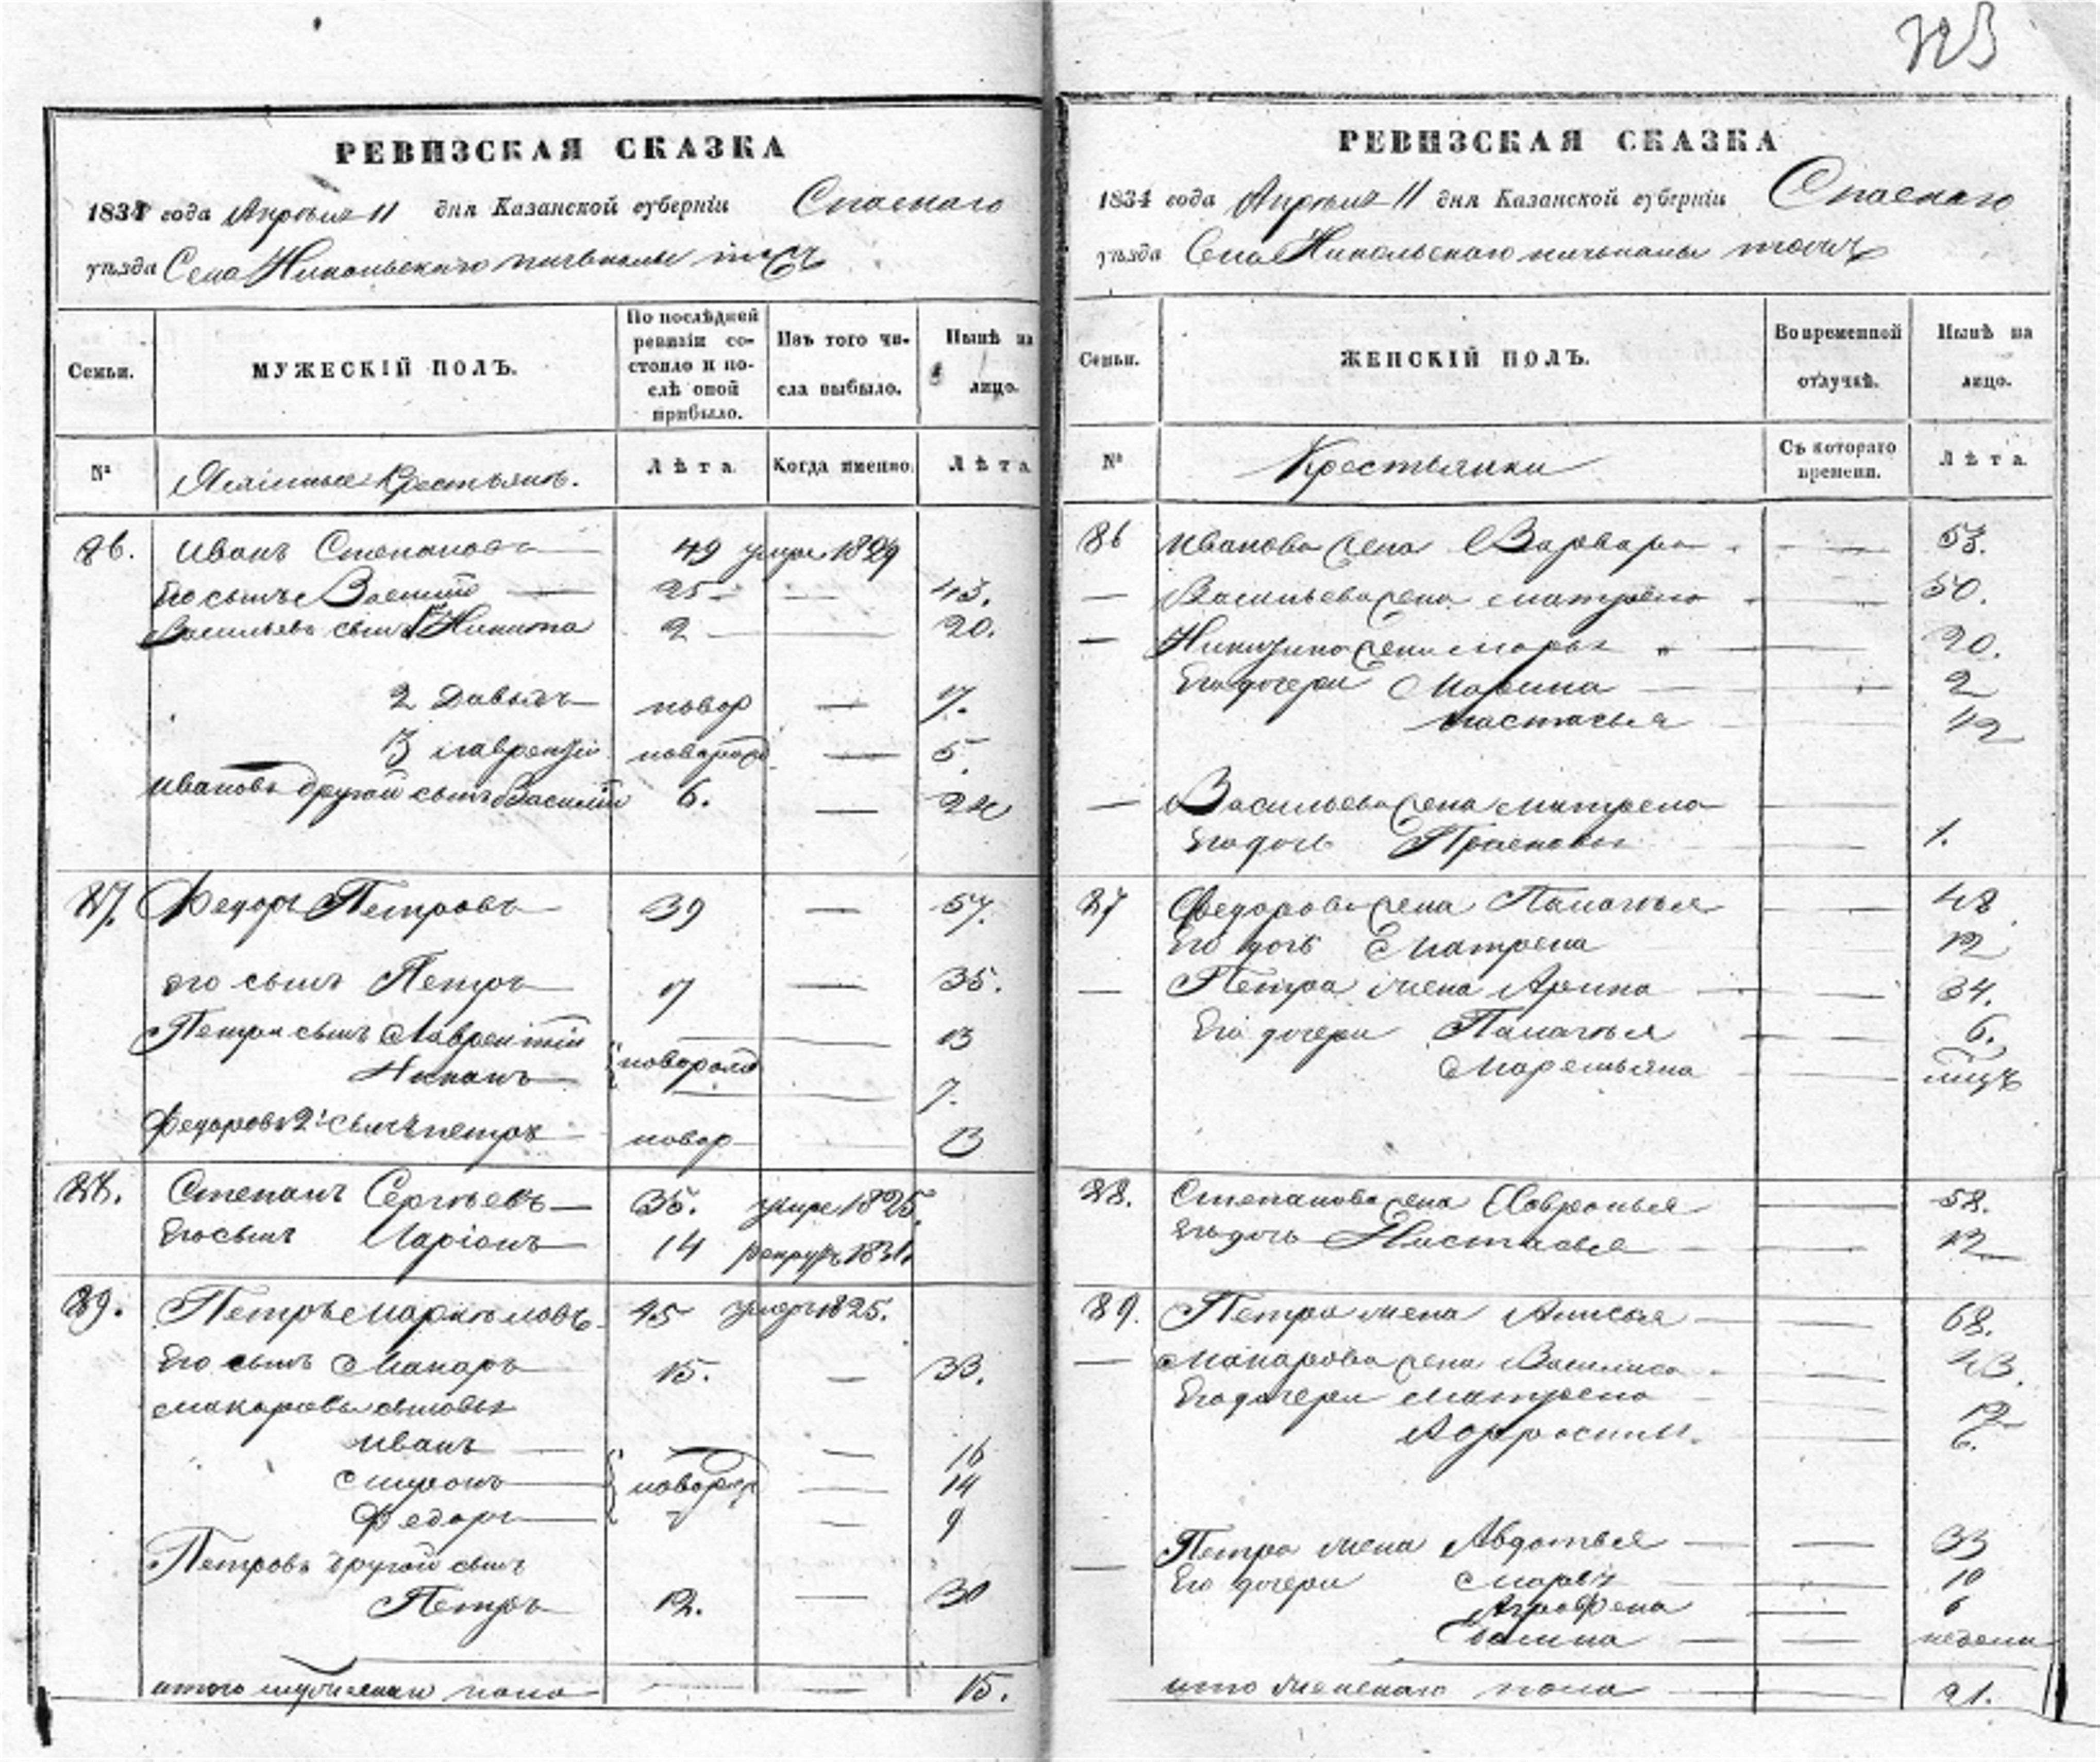 РЕВИЗСКАЯ СКАЗКА
1834 года Апреля 11 дня Казанской губерніи Спаскаго
уѣзда Села Никольскаго
Семьи.
МУЖЕСКІЙ ПОЛЪ.
По послѣдней
ревизіи со-
стояло и по-
слѣ оной
прибыло.
Изъ того чи-
сла выбыло.
Нынѣ на
лицо.
№
Крестьянъ.
Лѣта
Когда именно.
Лѣта
86. Иванъ Степановъ 49 умре 1829
Его сынъ Василий 25 43.
Васильевъ сынъ 1 Никита 2 20.
2 Давыдъ новор 17.
3 Лаврентій новорож 5
Ивановъ другой сынъ Василій 6. 24
87. Федоръ Петровъ 39 57.
его сынъ Петръ 17 35.
Петра сынъ Лаврентій 13
новорожд
7.
Федоровъ 2й сынъ Петръ новор 13
88. Степанъ Сергѣевъ 35. умре 1825.
Его сынъ Ларіонъ 14 рекрут. 1831
89. Петръ 45 умре 1825.
Его сынъ Макаръ 15. 33.
Макаровы сыновья
Иванъ 16
новорож 14
Федоръ 9
Петровъ другой сынъ
Петръ 12. 30
итого мужескаго пола 15.
РЕВИЗСКАЯ СКАЗКА
1834 года Апреля 11 дня Казанской губерніи Спаскаго
уѣзда Села Никольскаго
Семьи.
ЖЕНСКІЙ ПОЛЪ.
Во временной
отлучкѣ.
Нынѣ на
лицо.
№
Крестьянки
Съ котораго
времени.
Лѣта
86 Иванова жена Варвара 53.
Васильева жена Матрена 50.
Никитина жена Марья 20.
Его дочери Марина 2
Настасья
Васильева жена Матрена
Его дочь Прасковья 1.
87 Федорова жена Паланья 48
Его дочь Матрена 12
Петра жена Арина 34.
Его дочери Паланья 6.
88. Степанова жена Хавронья 58.
Его дочь Настасья 12
89. Петра жена Анисья 68.
Макарова жена Василиса 43.
Его дочери Матрена 12
6.
Петра жена Авдотья 33
Его дочери Марья 10
Аграфена 6
недели
итого женскаго пола 21.